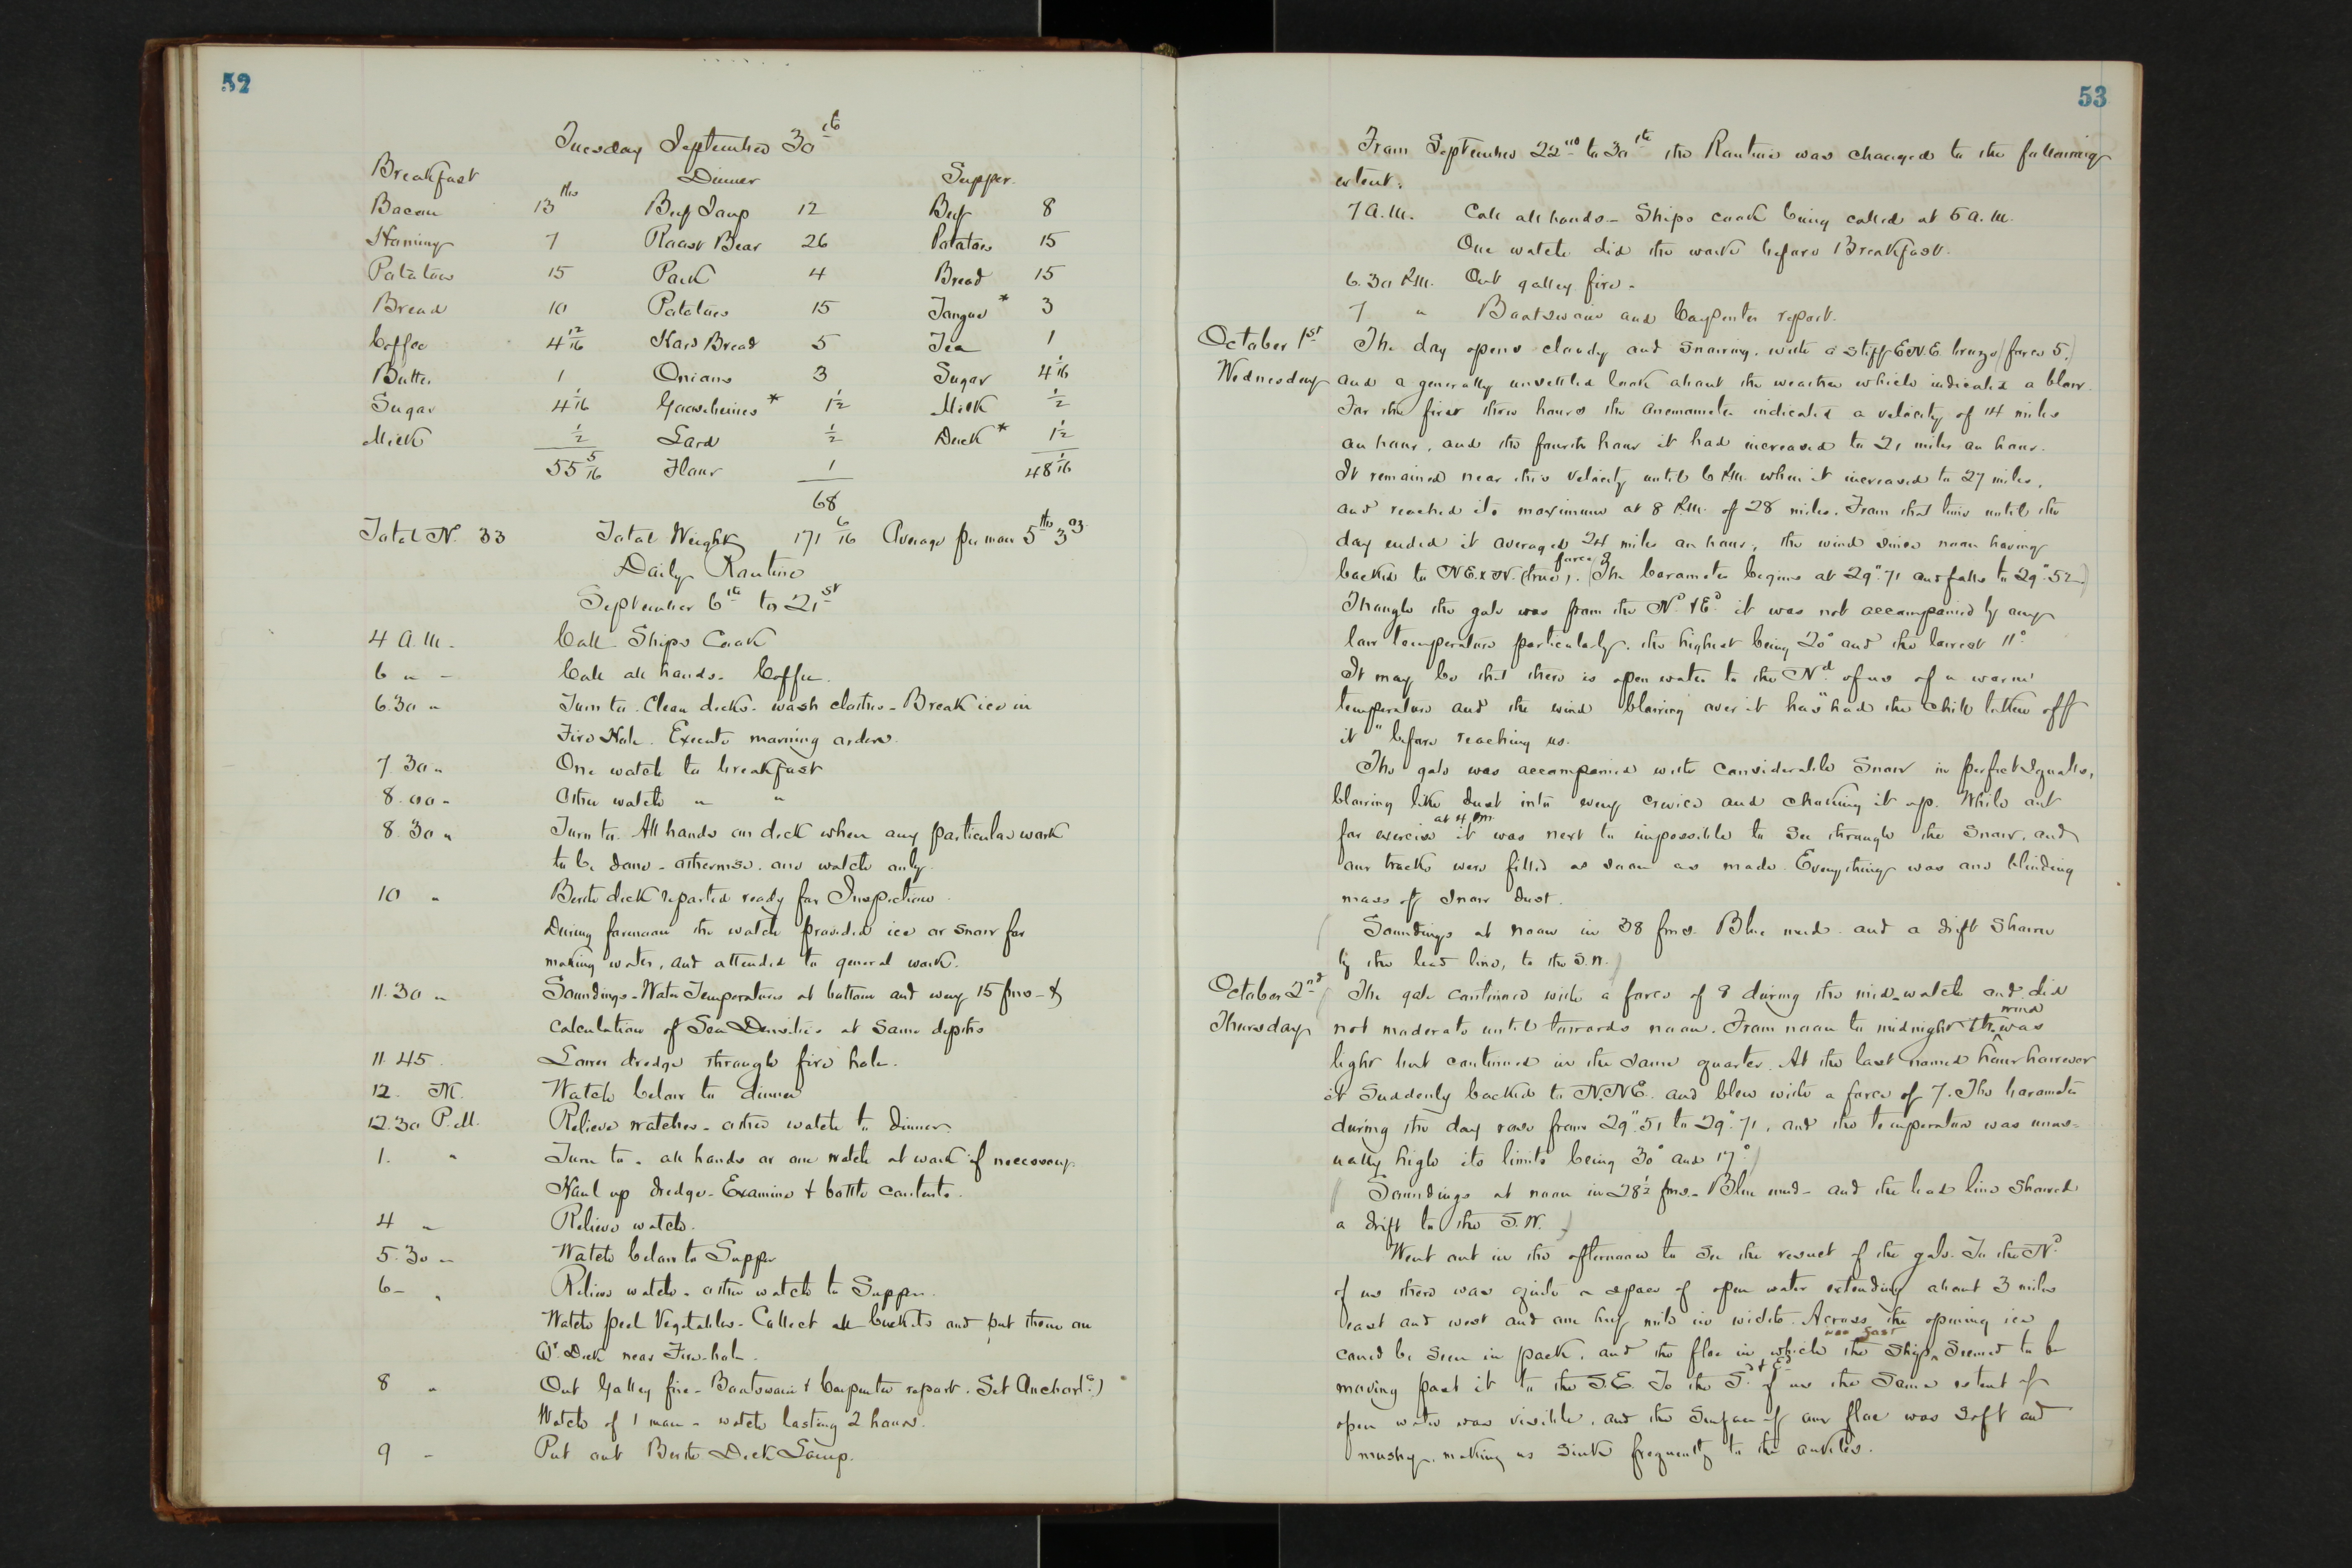 52
Tuesday September 30th
Breakfast Dinner Supper.
Bacon 13 lbs Beef Soup 12 Beef 8
Hominy 7 Roast Bear 26 Potatoes 15
Potatoes 15 Pork 4 Bread 15
Bread 10 Potatoes 15 Tongue * 3
Coffee 4 12/16 Hard Bread 5 Tea 1
Butter 1 Onions 3 Sugar 4 1/16
Sugar 4 1/16 Gooseberries * 1 1/2 Milk 1/2
Milk 1/2 Lard 1/2 Duck * 1 1/2
55 5/16 Flour 1 48 1/16
68
Total N. 33 Total Weight 171 6/16 Average per man 5 lbs 3 oz
Daily Routine
September 6th to 21st
4 A.M. Call Ships Cook
6 " Call all hands. Coffee.
6.30 " Turn to. Clean decks. wash clothes - Break ice in
Fire Hole. Execute morning orders.
7 30 " One watch to breakfast
8.00 " Other watch " "
8.30 " Turn to. All hands on deck when any particular work
to be done - otherwise. one watch only.
10 " Berth deck reported ready for Inspection.
During forenoon the watch provided ice or snow for
making water, and attended to general work.
11.30 " Soundings - Water Temperatures at bottom and every 15 fms - &
calculation of Sea Densities at same depths
11.45. Lower dredge through fire hole.
12. M. Watch below to dinner
12.30 P.M. Relieve watches - other watch to dinner.
1. " Turn to - all hands or one watch at work if necessary.
Haul up dredge - Examine & bottle contents.
4 " Relieve watch.
5.30 " Watch below to Supper
6 - " Relieve watch - other watch to Supper.
Watch peel Vegetables - Collect all buckets and put them on
Qr. Deck near Fire-hole.
8 " Out Galley fire - Boatswain & Carpenter report. Set Anchor(
Watch of 1 man - watch lasting 2 hours.
9 - Put out Berth Deck Lamp.
53
From September 22nd to 30th the Routine was changed to the following
extent.
7 A.M. Call all hands - Ships cook being called at 5 A.M.
One watch did the work before Breakfast.
6.30 P.M. Out galley fire.
7 " Boatswain and Carpenter report.
October 1st The day opens cloudy and snowing. with a stiff E.N.E. breeze (force 5.)
Wednesday and a generally unsettled look about the weather which indicated a blow.
For the first three hours the anemometer indicated a velocity of 14 miles
an hour, and the fourth hour it had increased to 21 miles an hour.
It remained near this velocity until 6 P.M. when it increased to 27 miles,
and reached its maximum at 8 P.M. of 28 miles. From that time until the
day ended it averaged 24 miles an hour, the wind since noon having
backed to N.E. x N. (true), force 8. (The barometer begins at 29".71 and falls to 29".52.)
Though the gale was from the Nd & Ed it was not accompanied by any
low temperature particularly. the highest being 20° and the lowest 11°.
It may be that there is open water to the Nd. of us of a warm
temperature and the wind blowing over it has "had the chill taken off
it" before reaching us.
The gale was accompanied with considerable Snow in perfect squalls,
blowing like dust into every crevice and choking it up. While out
for exercise at 4 pm. it was next to impossible to see through the snow, and
our tracks were filled as soon as made. Everything was one blinding
mass of snow dust.
Soundings at noon in 38 fms. Blue mud. and a drift shown
by the lead line, to the S.W.)
October 2nd The gale continued with a force of 8 during the mid-watch and did
Thursday not moderate until towards noon. From noon to midnight the wind was
light but continued in the same quarter. At the last named hour however
it Suddenly backed to N.N.E. and blew with a force of 7. The barometer
during the day rose from 29".51 to 29".71, and the temperature was unus-
ually high its limits being 30° and 17°.)
Soundings at noon in 28 1/2 fms. Blue mud - and the lead line showed
a drift to the S.W.)
Went out in the afternoon to see the result of the gale. To the Nd.
of us there was quite a space of open water extending about 3 miles
east and west and one half mile in width. Across the opening ice
could be seen in pack, and the floe in which the ship was fast seemed to be
moving past it to the S.E. To the Sd & Ed of us the same extent of
open water was visible, and the surface of our floe was soft and
mushy, making us sink frequently to the ankles.